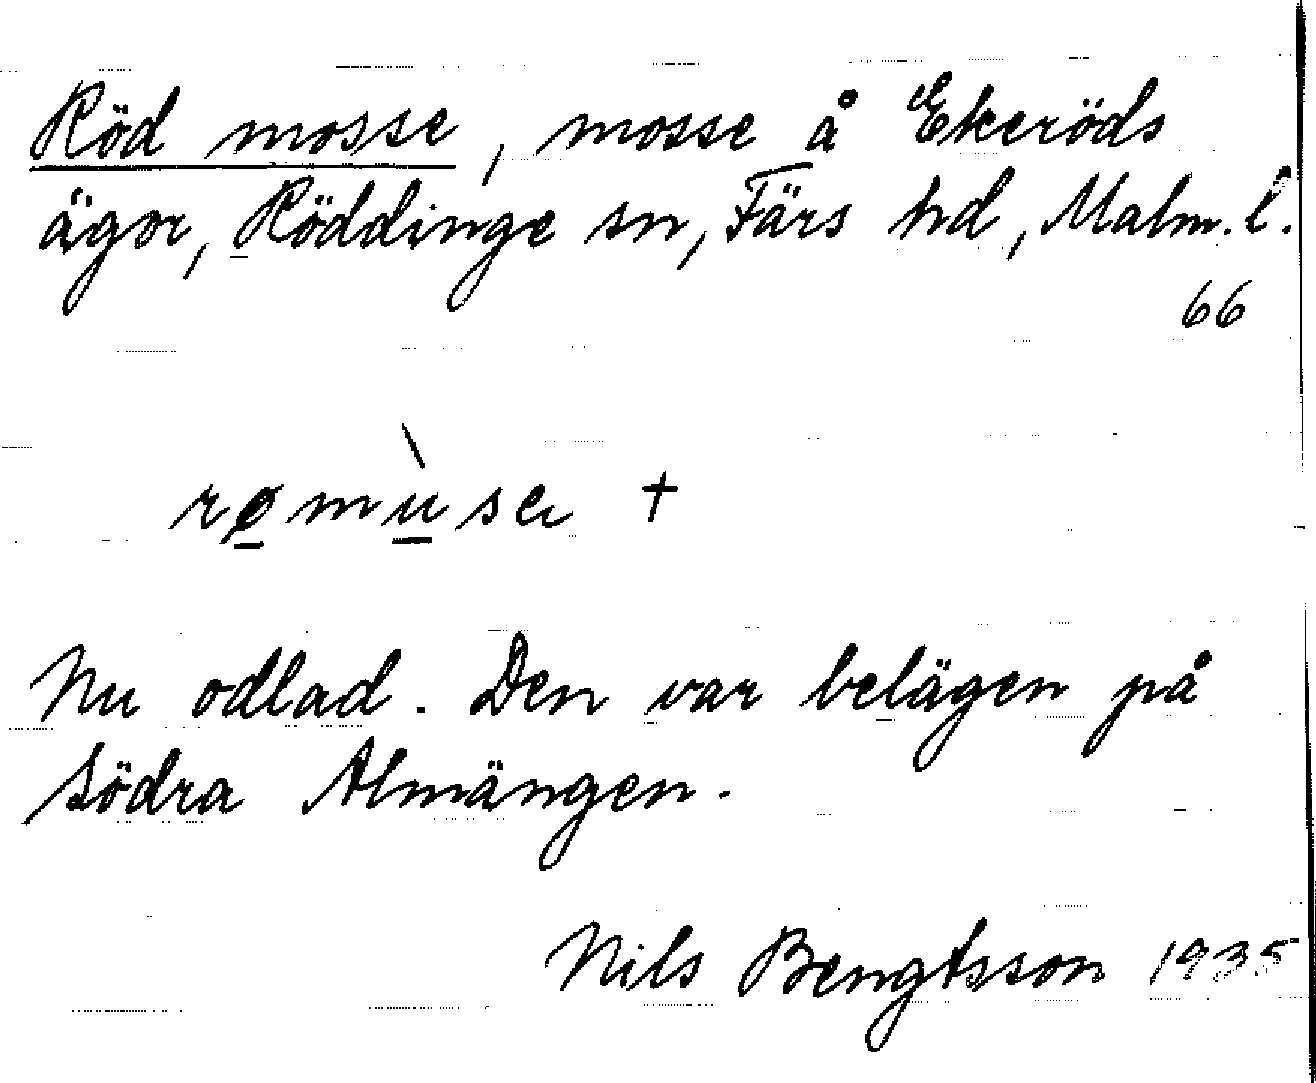 Röd mosse, mosse å Ekeröds
ägor, Röddinge sn, Färs hd, Malm. l.
66
rømùsa +
Nu odlad. Den var belägen på
Södra Almängen.
Nils Bengtsson 1935